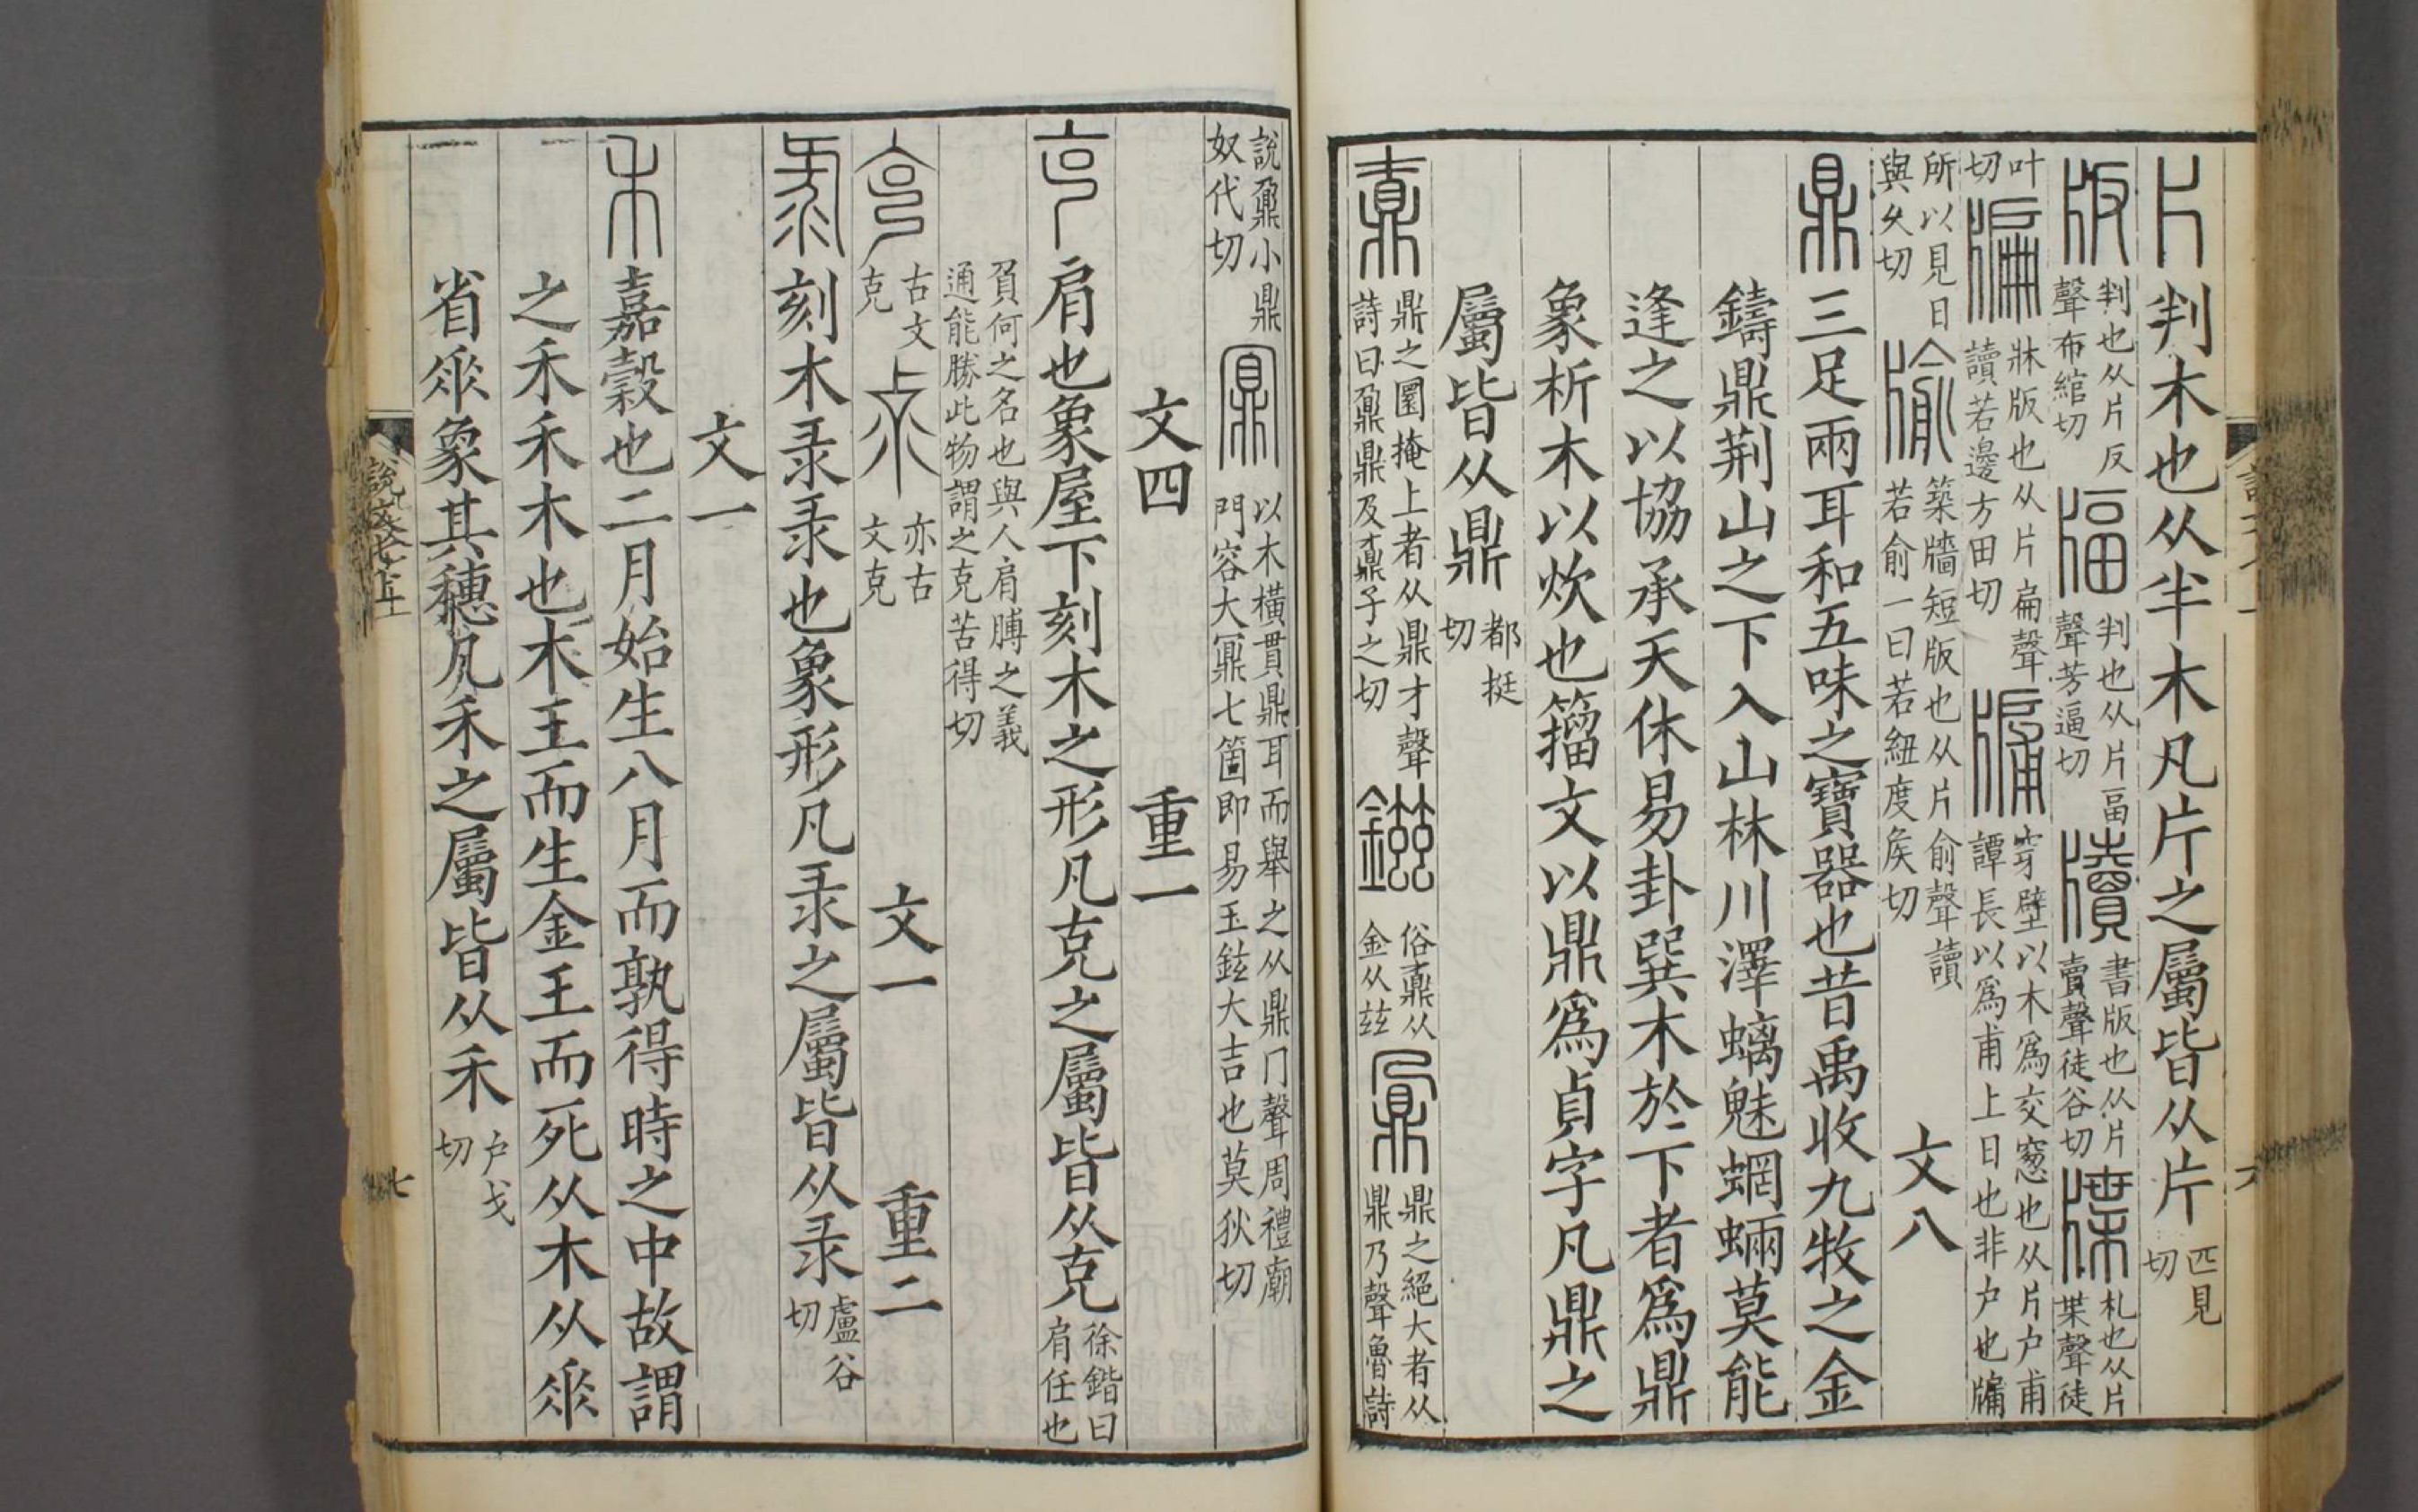 片判木也从半木凡片之屬皆从片匹見切
版判也从片反聲布綰切 牑判也从片畐聲芳逼切 牘書版也从片賣聲徒谷切 牒札也从片枼聲徒
叶切 牑牀版也从片扁聲讀若邊方田切 牖穿壁以木爲交窻也从片户甫譚長以爲甫上日也非户也牖
所以見日與久切 牏築牆短版也从片俞聲讀若俞一曰若紐度矦切 文八
鼎三足兩耳和五味之寶器也昔禹收九牧之金
鑄鼎荆山之下入山林川澤螭魅蝄蜽莫能
逢之以協承天休易卦巽木於下者爲鼎
象析木以炊也籀文以鼎爲貞字凡鼎之
屬皆从鼎都挺切
鼒鼎之圜掩上者从鼎才聲詩曰鼐鼎及鼒子之切 鎡俗鼒从金从兹 鼐鼎之絕大者从鼎乃聲魯詩
說鼐小鼎奴代切 鼏以木橫貫鼎耳而舉之从鼎冂聲周禮廟門容大鼏七箇即易玉鉉大吉也莫狄切
文四 重一
克肩也象屋下刻木之形凡克之屬皆从克徐鍇曰肩任也
負何之名也與人肩膊之義通能勝此物謂之克苦得切
古文克 亦古文克 文一 重二
彔刻木彔彔也象形凡彔之屬皆从彔盧谷切
文一
禾嘉穀也二月始生八月而孰得時之中故謂
之禾禾木也木王而生金王而死从木从𠂹
省𠂹象其穗凡禾之屬皆从禾户戈切
說文七上
七